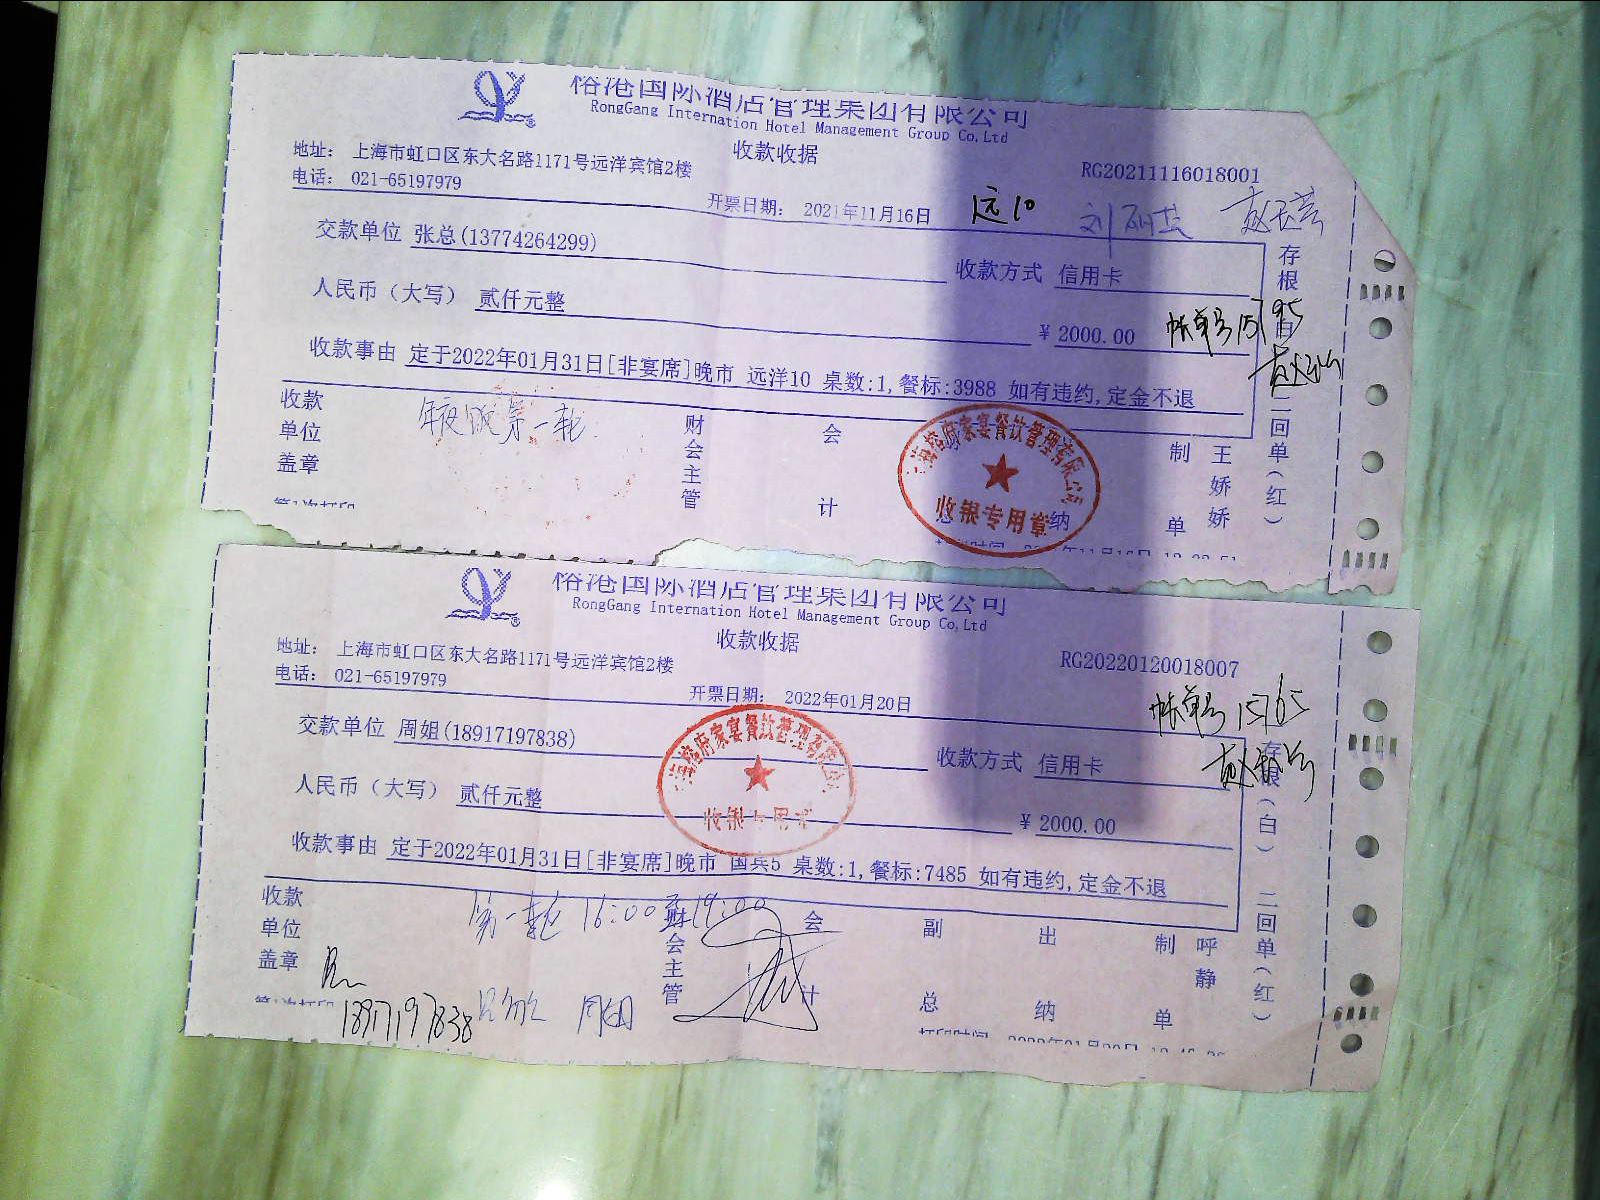 榕港国际酒店管理集团有限公司
RongGang Internation Hotel Management Group Co,Ltd
收款收据
地址： 上海市虹口区东大名路1171号远洋宾馆2楼
RG20211116018001
电话： 021-65197979
开票日期： 2021年11月16日
远10
交款单位 张总(13774264299)
收款方式 信用卡
人民币（大写） 贰仟元整
¥ 2000.00
帐单号
收款事由 定于2022年01月31日[非宴席]晚市 远洋10 桌数:1,餐标:3988 如有违约,定金不退
存根（白） 二回单（红）
年夜饭第一轮
收款单位盖章
财会主管
会计
制单
王娇娇
榕府家宴餐饮管理有限公司
收银专用章
榕港国际酒店管理集团有限公司
RongGang Internation Hotel Management Group Co,Ltd
收款收据
地址： 上海市虹口区东大名路1171号远洋宾馆2楼
RG20220120018007
电话： 021-65197979
开票日期： 2022年01月20日
帐单号 15765
交款单位 周姐(18917197838)
收款方式 信用卡
人民币（大写） 贰仟元整
¥ 2000.00
收款事由 定于2022年01月31日[非宴席]晚市 国宾5 桌数:1,餐标:7485 如有违约,定金不退
存根（白） 二回单（红）
榕府家宴餐饮管理有限公司
收银专用章
第一轮 16:00至19:00
收款单位盖章
财会主管
会计
副总
出纳
制单
呼静
18917197838